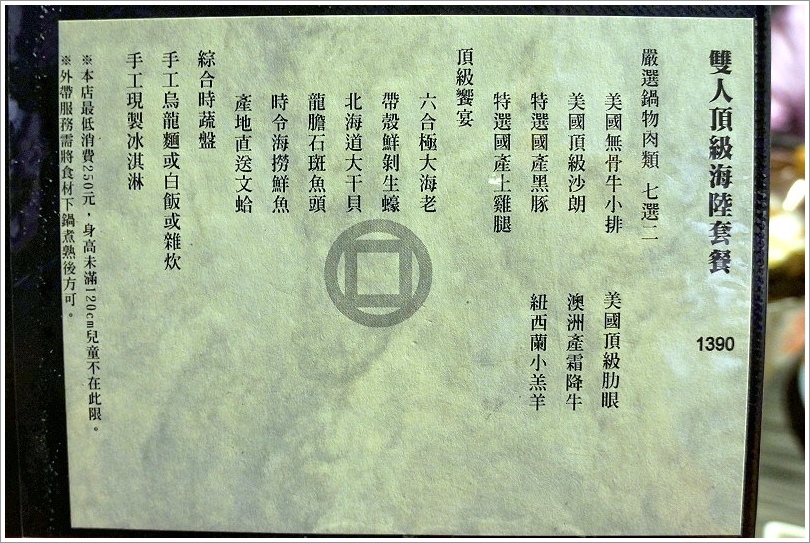 雙人頂級海陸套餐 1390
嚴選鍋物肉類 七選二
美國無骨牛小排 美國頂級肋眼
美國頂級沙朗 澳洲產霜降牛
特選國產黑豚 紐西蘭小羔羊
特選國產土雞腿
頂級饗宴
六合極大海老
帶殼鮮剝生蠔
北海道大干貝
龍膽石斑魚頭
時令海撈鮮魚
產地直送文蛤
綜合時蔬盤
手工烏龍麵或白飯或雜炊
手工現製冰淇淋
※本店最低消費250元，身高未滿120cm兒童不在此限。
※外帶服務需將食材下鍋煮熟後方可。